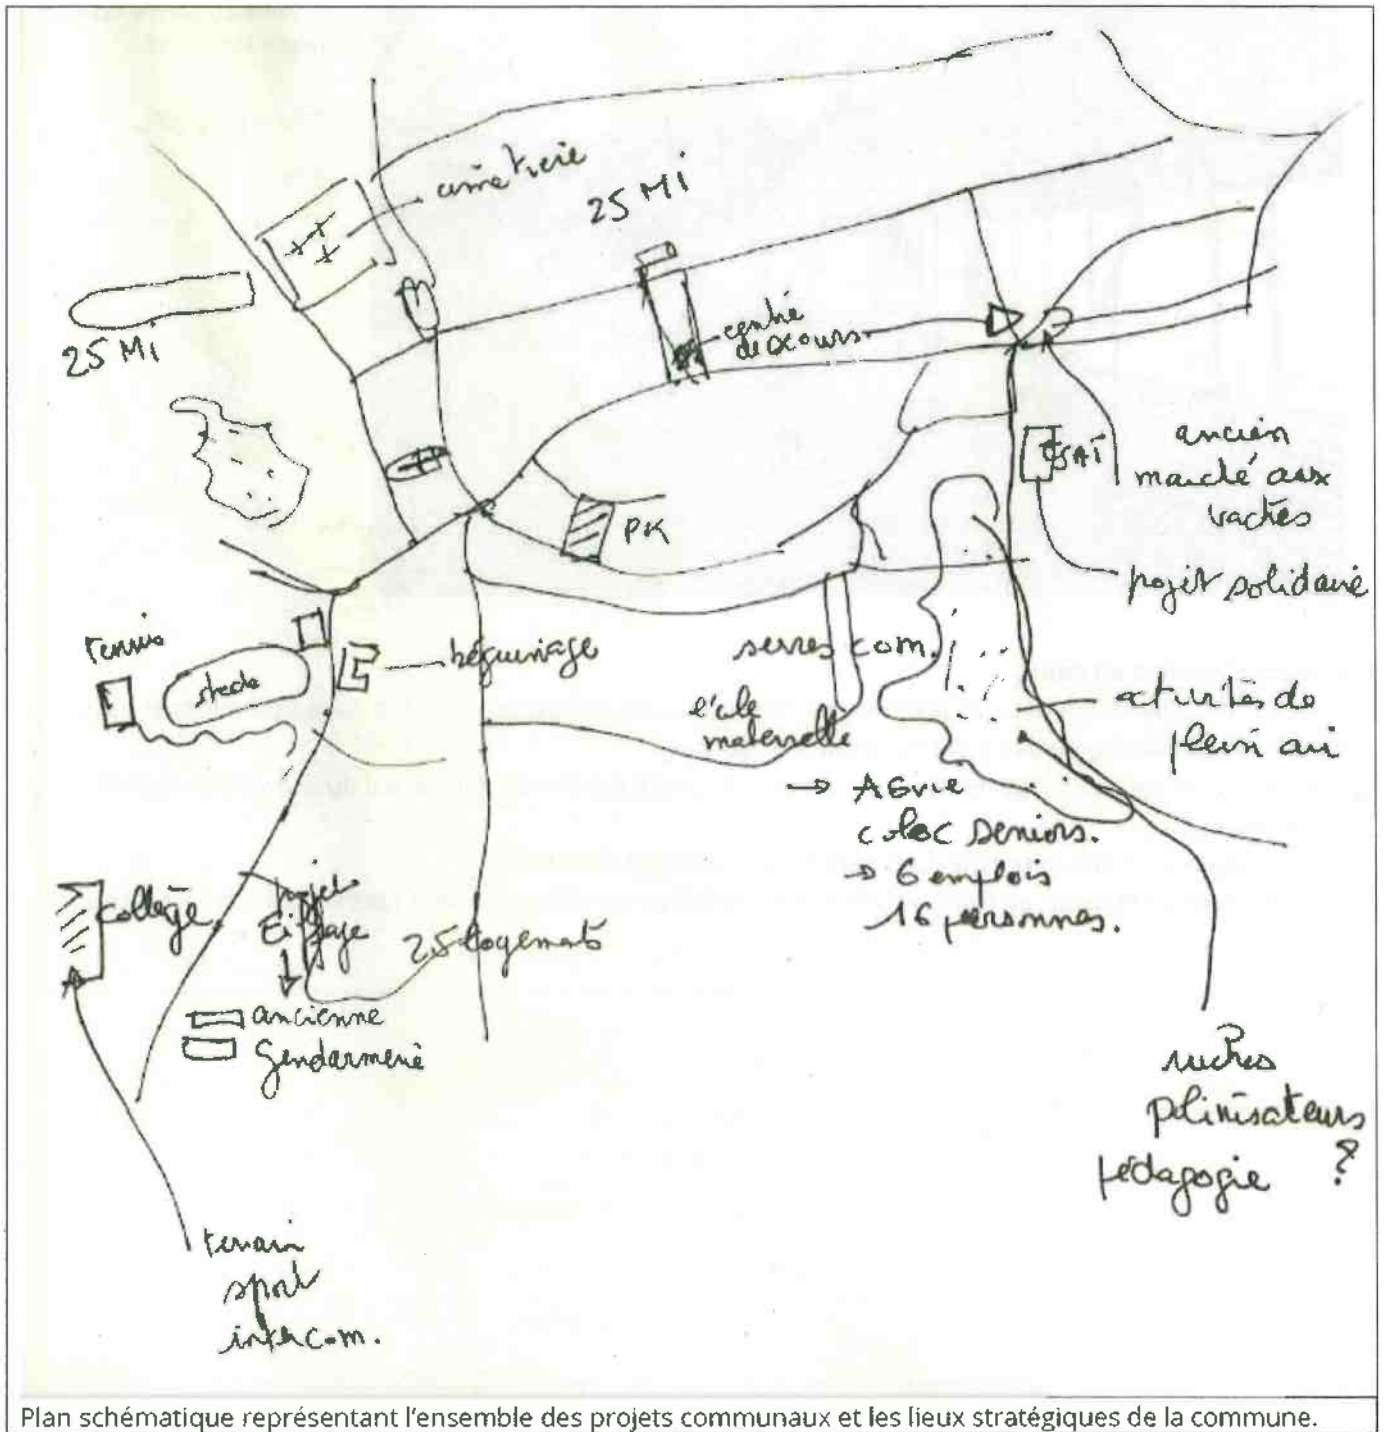 cimetière
25 Mi
25 Mi
centre
de secours
PK
ESAT
ancien
marché aux
vaches
projet solidaire
tennis
stade
béguinage
serres com.
école
maternelle
activités de
plein air
→ AGvie
coloc seniors.
→ 6 emplois
16 personnes.
collège
projet
Eiffage
25 logements
ancienne
Gendarmerie
ruches
polinisateurs
pédagogie ?
terrain
sport
intercom.
Plan schématique représentant l'ensemble des projets communaux et les lieux stratégiques de la commune.